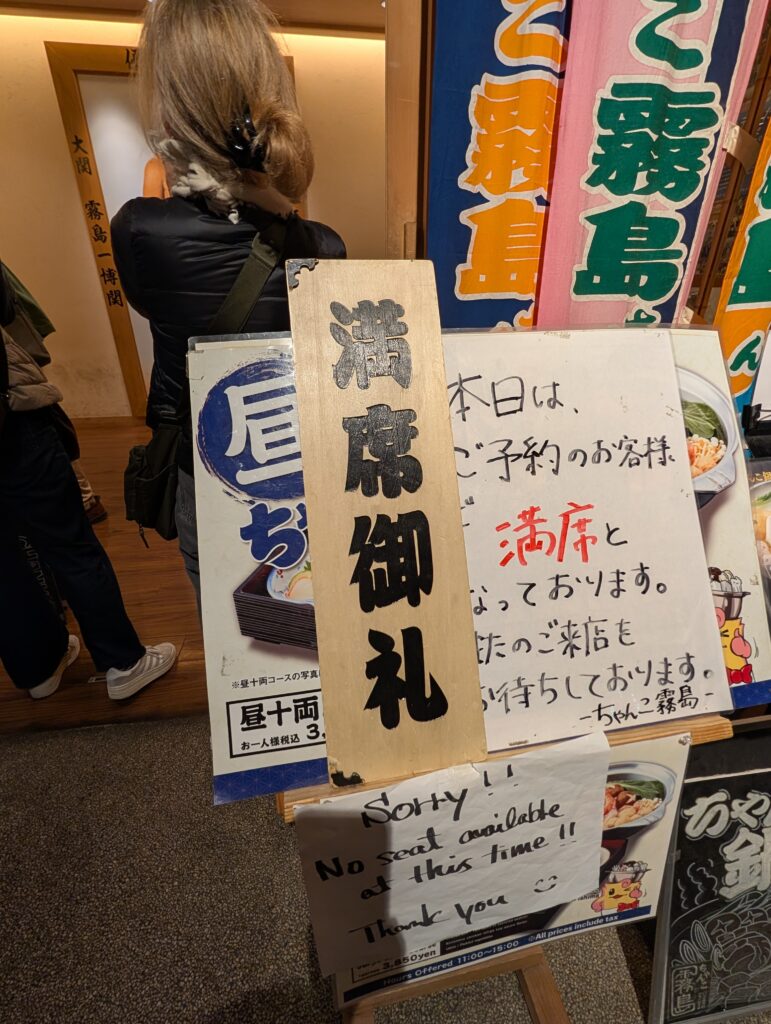 大関
霧島一博関
こ霧島
こ霧島
ん
満席御礼
昼
ぢ
※昼十両コースの写真
昼十両
お一人様税込 3,
本日は、
ご予約のお客様
で
満席と
なっております。
またのご来店を
お待ちしております。
-ちゃんこ霧島-
Sorry!!
No seat available
at this time!!
Thank you
3,850yen
※All prices include tax
Hours Offered 11:00~15:00
ぢゃ
鍋
霧島